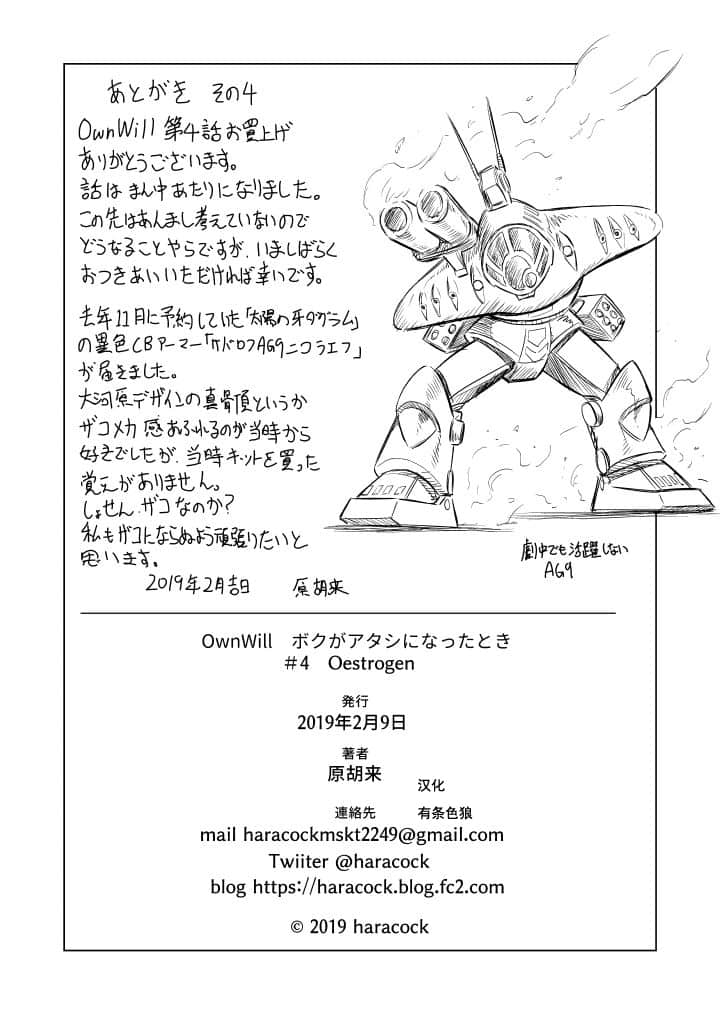 あとがき その4
OwnWill 第4話お買上げ
ありがとうございます。
話は まん中あたりになりました。
この先はあんまし考えていないので
どうなることやらですが、いましばらく
おつきあいいただければ幸いです。
去年11月に予約していた「太陽の牙ダグラム」
の異色CBアーマー「ケドロフAG9ニコラエフ」
が届きました。
大河原デザインの真骨頂というか
ザコメカ感あふれるのが当時から
好きでしたが、当時キットを買った
覚えがありません。
しょせん、ザコなのか?
私もザコにならぬよう頑張りたいと
思います。
2019年2月吉日 原胡来
劇中でも活躍しない
AG9
OwnWill ボクがアタシになったとき
#4 Oestrogen
発行
2019年2月9日
著者
原胡来
汉化
連絡先 有条色狼
mail haracockmskt2249@gmail.com
Twiiter @haracock
blog https://haracock.blog.fc2.com
© 2019 haracock